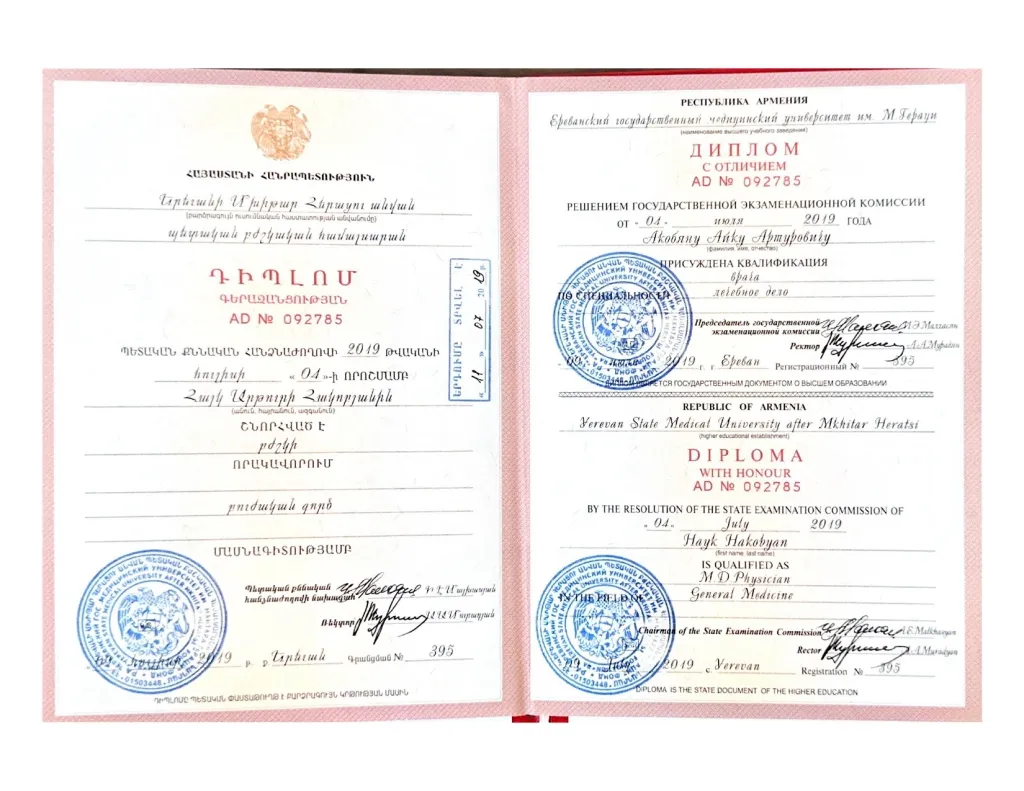 ՀԱՅԱՍՏԱՆԻ ՀԱՆՐԱՊԵՏՈՒԹՅՈՒՆ
Երևանի Մխիթար Հերացու անվան
(բարձրագույն ուսումնական հաստատության անվանումը)
պետական բժշկական համալսարան
ԴԻՊԼՈՄ
ԳԵՐԱԶԱՆՑՈՒԹՅԱՆ
AD № 092785
ՊԵՏԱԿԱՆ ՔՆՆԱԿԱՆ ՀԱՆՁՆԱԺՈՂՈՎԻ 2019 ԹՎԱԿԱՆԻ
հուլիսի «04»-ի ՈՐՈՇՄԱՄԲ
Հայկ Արթուրի Հակոբյանին
(անուն, հայրանուն, ազգանուն)
ՇՆՈՐՀՎԱԾ Է
բժշկի
ՈՐԱԿԱՎՈՐՈՒՄ
բուժական գործ
ՄԱՍՆԱԳԻՏՈՒԹՅԱՄԲ
Պետական քննական
հանձնաժողովի նախագահ
Ռեկտոր
09 հուլիսի 2019 թ. ք. Երևան Գրանցման № 395
ԴԻՊԼՈՄԸ ՊԵՏԱԿԱՆ ՓԱՍՏԱԹՈՒՂԹ Է ԲԱՐՁՐԱԳՈՒՅՆ ԿՐԹՈՒԹՅԱՆ ՄԱՍԻՆ
ԵՐԴՈՒՄԸ ՏՐՎԵԼ Է
« 11 » 07 2019թ.
РЕСПУБЛИКА АРМЕНИЯ
Ереванский государственный медицинский университет им. М.Гераци
(наименование высшего учебного заведения)
ДИПЛОМ
С ОТЛИЧИЕМ
AD № 092785
РЕШЕНИЕМ ГОСУДАРСТВЕННОЙ ЭКЗАМЕНАЦИОННОЙ КОМИССИИ
ОТ "04" июля 2019 ГОДА
Акобяну Айку Артуровичу
(фамилия, имя, отчество)
ПРИСУЖДЕНА КВАЛИФИКАЦИЯ
врача
ПО СПЕЦИАЛЬНОСТИ лечебное дело
Председатель государственной
экзаменационной комиссии
Ректор А.А.Мурадян
09 июля 2019 г. г. Ереван Регистрационный № 395
ДИПЛОМ ЯВЛЯЕТСЯ ГОСУДАРСТВЕННЫМ ДОКУМЕНТОМ О ВЫСШЕМ ОБРАЗОВАНИИ
REPUBLIC OF ARMENIA
Yerevan State Medical University after Mkhitar Heratsi
(higher educational establishment)
DIPLOMA
WITH HONOUR
AD № 092785
BY THE RESOLUTION OF THE STATE EXAMINATION COMMISSION OF
"04" July 2019
Hayk Hakobyan
(first name, last name)
IS QUALIFIED AS
M.D Physician
IN THE FIELD OF General Medicine
Chairman of the State Examination Commission
Rector A.Muradyan
09 July 2019 c. Yerevan Registration № 395
DIPLOMA IS THE STATE DOCUMENT OF THE HIGHER EDUCATION